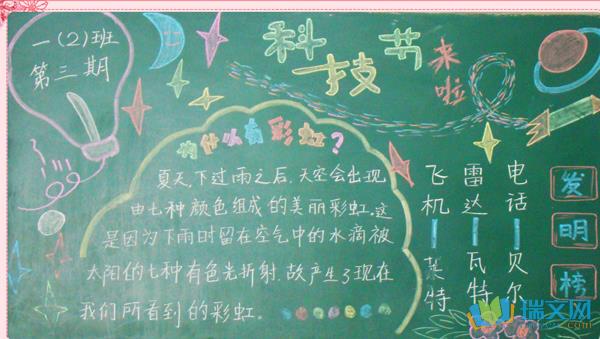 一(2)班
第三期
科技节
来啦
为什么有彩虹？
夏天，下过雨之后，天空会出现
由七种颜色组成的美丽彩虹。这
是因为下雨时留在空气中的水滴被
太阳的七种有色光折射，故产生了现在
我们所看到的彩虹。
飞机——莱特
雷达——瓦特
电话——贝尔
发明榜
瑞文网